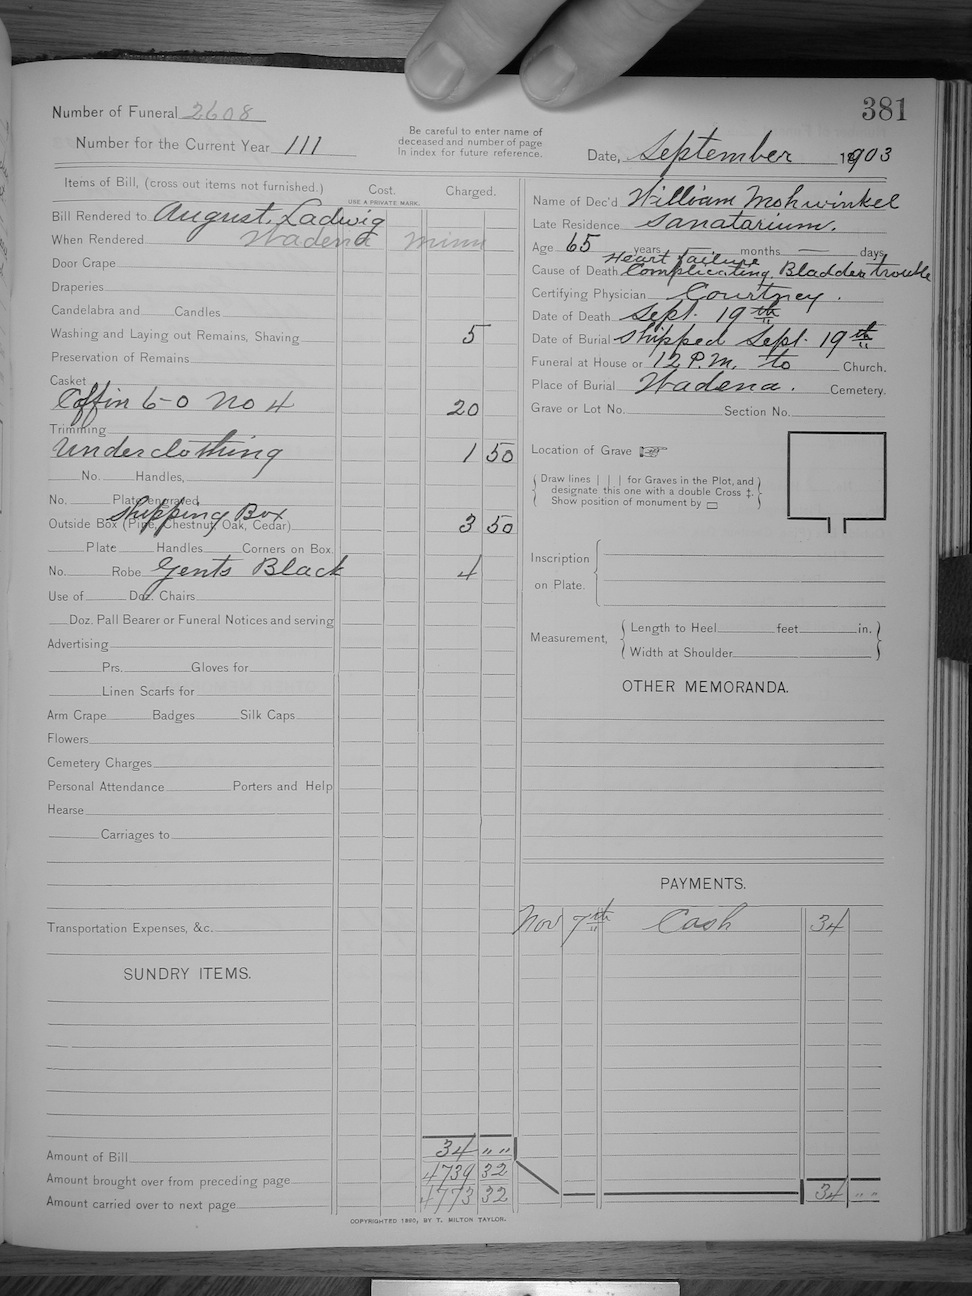 381
Number of Funeral 2608
Number for the Current Year 111
Be careful to enter name of
deceased and number of page
in index for future reference.
Date, September 1903
Items of Bill, (cross out items not furnished.) Cost. Charged.
USE A PRIVATE MARK.
Bill Rendered to August Ladwig
When Rendered Wadena Minn
Door Crape
Draperies
Candelabra and Candles
Washing and Laying out Remains, Shaving 5
Preservation of Remains
Casket
Coffin 6-0 No 4 20
Trimming
Underclothing 1 50
No. Handles,
No. Plate engraved
Shipping Box
Outside Box (Pine, Chestnut, Oak, Cedar) 3 50
Plate Handles Corners on Box.
No. Robe Gents Black 4
Use of Doz. Chairs
Doz. Pall Bearer or Funeral Notices and serving
Advertising
Prs. Gloves for
Linen Scarfs for
Arm Crape Badges Silk Caps
Flowers
Cemetery Charges
Personal Attendance Porters and Help
Hearse
Carriages to
Transportation Expenses, &c.
SUNDRY ITEMS.
Amount of Bill 34 " "
Amount brought over from preceding page 4739 32
Amount carried over to next page 4773 32
Name of Dec'd William Mohwinkel
Late Residence Sanatarium.
Age 65 years months days
Heart failure
Cause of Death Complicating Bladder trouble
Certifying Physician Courtney.
Date of Death Sept. 19th
Date of Burial Shipped Sept. 19th
Funeral at House or 12 P.M. to Church.
Place of Burial Wadena. Cemetery.
Grave or Lot No. Section No.
Location of Grave
Draw lines | | | for Graves in the Plot, and
designate this one with a double Cross ‡.
Show position of monument by ▭
Inscription
on Plate.
Measurement, Length to Heel feet in.
Width at Shoulder
OTHER MEMORANDA.
PAYMENTS.
Nov 7th Cash 34
34 " "
COPYRIGHTED 1890, BY T. MILTON TAYLOR.